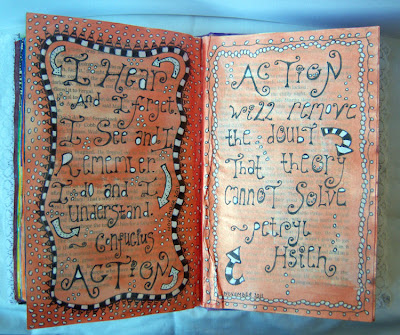 I Hear
And I forget.
I See and I
Remember.
I do and I
understand.
~ Confucius
ACTION
ACTION
will remove
the doubt
That theory
cannot Solve
~ petryl
Hsieh